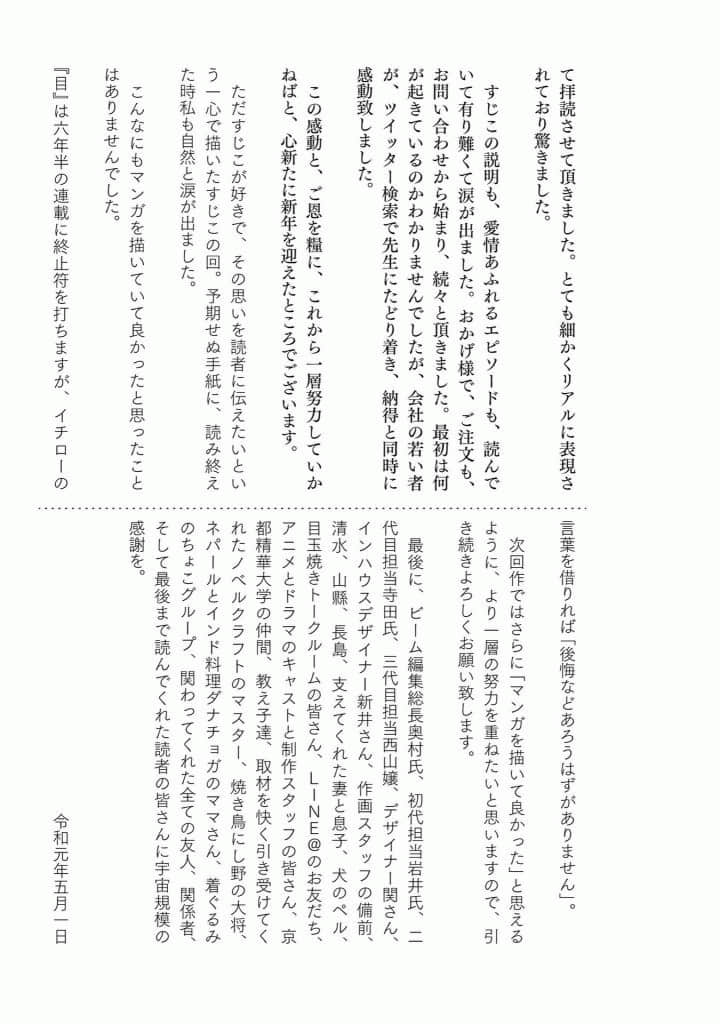 て拝読させて頂きました。とても細かくリアルに表現さ
れており驚きました。
すじこの説明も、愛情あふれるエピソードも、読んで
いて有り難くて涙が出ました。おかげ様で、ご注文も、
お問い合わせから始まり、続々と頂きました。最初は何
が起きているのかわかりませんでしたが、会社の若い者
が、ツイッター検索で先生にたどり着き、納得と同時に
感動致しました。
この感動と、ご恩を糧に、これから一層努力していか
ねばと、心新たに新年を迎えたところでございます。
ただすじこが好きで、その思いを読者に伝えたいとい
う一心で描いたすじこの回。予期せぬ手紙に、読み終え
た時私も自然と涙が出ました。
こんなにもマンガを描いていて良かったと思ったこと
はありませんでした。
『目』は六年半の連載に終止符を打ちますが、イチローの
言葉を借りれば「後悔などあろうはずがありません」。
次回作ではさらに「マンガを描いて良かった」と思える
ように、より一層の努力を重ねたいと思いますので、引
き続きよろしくお願い致します。
最後に、ビーム編集総長奥村氏、初代担当岩井氏、二
代目担当寺田氏、三代目担当西山嬢、デザイナー関さん、
インハウスデザイナー新井さん、作画スタッフの備前、
清水、山縣、長島、支えてくれた妻と息子、犬のペル、
目玉焼きトークルームの皆さん、LINE@のお友だち、
アニメとドラマのキャストと制作スタッフの皆さん、京
都精華大学の仲間、教え子達、取材を快く引き受けてく
れたノベルクラフトのマスター、焼き鳥にし野の大将、
ネパールとインド料理ダナチョガのママさん、着ぐるみ
のちょこグループ、関わってくれた全ての友人、関係者、
そして最後まで読んでくれた読者の皆さんに宇宙規模の
感謝を。
令和元年五月一日